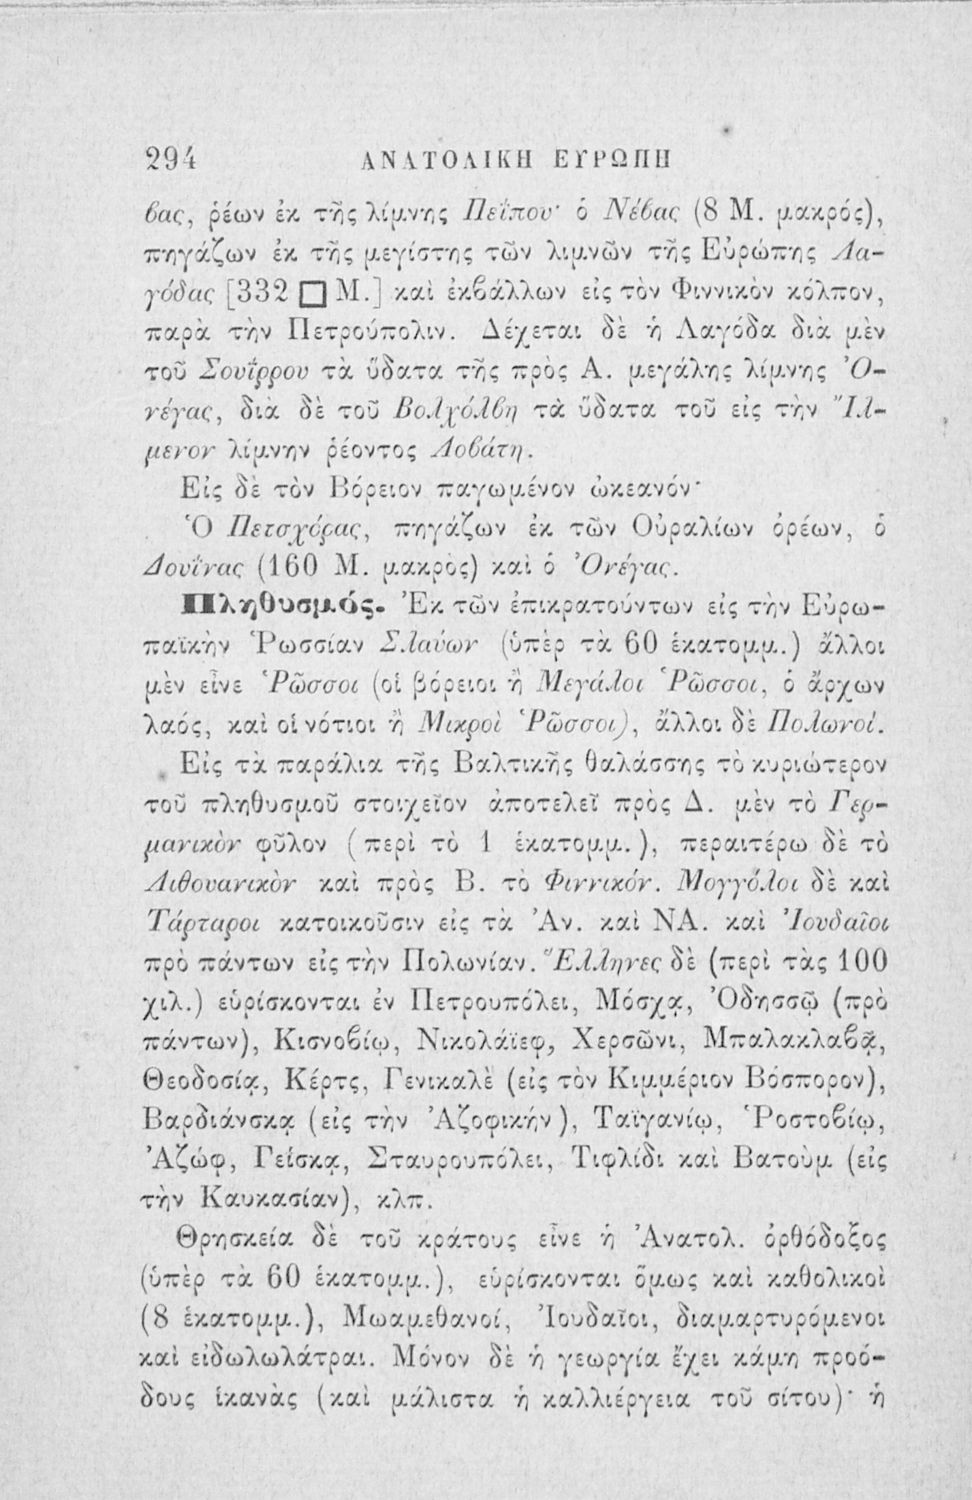 294 ΑΝΑΤΟΛΙΚΗ ΕΥΡΩΠΗ
βας, ῥέων ἐκ τῆς λίμνης Πεΐπου· ὁ Νέβας (8 Μ. μακρός),
πηγάζων ἐκ τῆς μεγίστης τῶν λιμνῶν τῆς Εὐρώπης Λα-
γόδας [332 □ Μ.] καὶ ἐκβάλλων εἰς τὸν Φιννικὸν κόλπον,
παρὰ τὴν Πετρούπολιν. Δέχεται δὲ ἡ Λαγόδα διὰ μὲν
τοῦ Σουΐρρου τὰ ὕδατα τῆς πρὸς Α. μεγάλης λίμνης Ὀ-
νέγας, διὰ δὲ τοῦ Βολχόλβη τὰ ὕδατα τοῦ εἰς τὴν Ἴλ-
μενον λίμνην ῥέοντος Λοβάτη.
Εἰς δὲ τὸν Βόρειον παγωμένον ὠκεανόν·
Ὁ Πετσχόρας, πηγάζων ἐκ τῶν Οὐραλίων ὀρέων, ὁ
Δουΐνας (160 Μ. μακρὸς) καὶ ὁ Ὀνέγας.
Πληθυσμός. Ἐκ τῶν ἐπικρατούντων εἰς τὴν Εὐρω-
παϊκὴν Ῥωσσίαν Σλαύων (ὑπὲρ τὰ 60 ἑκατομμ.) ἄλλοι
μὲν εἶνε Ῥῶσσοι (οἱ βόρειοι ἢ Μεγάλοι Ῥῶσσοι, ὁ ἄρχων
λαός, καὶ οἱ νότιοι ἢ Μικροὶ Ῥῶσσοι), ἄλλοι δὲ Πολωνοί.
Εἰς τὰ παράλια τῆς Βαλτικῆς θαλάσσης τὸ κυριώτερον
τοῦ πληθυσμοῦ στοιχεῖον ἀποτελεῖ πρὸς Δ. μὲν τὸ Γερ-
μανικὸν φῦλον (περὶ τὸ 1 ἑκατομμ.), περαιτέρω δὲ τὸ
Λιθουανικὸν καὶ πρὸς Β. τὸ Φιννικόν. Μογγόλοι δὲ καὶ
Τάρταροι κατοικοῦσιν εἰς τὰ Ἀν. καὶ ΝΑ. καὶ Ἰουδαῖοι
πρὸ πάντων εἰς τὴν Πολωνίαν. Ἕλληνες δὲ (περὶ τὰς 100
χιλ.) εὑρίσκονται ἐν Πετρουπόλει, Μόσχᾳ, Ὀδησσῷ (πρὸ
πάντων), Κισνοβίῳ, Νικολάϊεφ, Χερσῶνι, Μπαλακλαβᾷ,
Θεοδοσίᾳ, Κέρτς, Γενικαλὲ (εἰς τὸν Κιμμέριον Βόσπορον),
Βαρδιάνσκᾳ (εἰς τὴν Ἀζοφικήν), Ταϊγανίῳ, Ῥοστοβίῳ,
Ἀζώφ, Γείσκᾳ, Σταυρουπόλει, Τιφλίδι καὶ Βατοὺμ (εἰς
τὴν Καυκασίαν), κλπ.
Θρησκεία δὲ τοῦ κράτους εἶνε ἡ Ἀνατολ. ὀρθόδοξος
(ὑπὲρ τὰ 60 ἑκατομμ.), εὑρίσκονται ὅμως καὶ καθολικοὶ
(8 ἑκατομμ.), Μωαμεθανοί, Ἰουδαῖοι, διαμαρτυρόμενοι
καὶ εἰδωλωλάτραι. Μόνον δὲ ἡ γεωργία ἔχει κάμη προό-
δους ἱκανὰς (καὶ μάλιστα ἡ καλλιέργεια τοῦ σίτου)· ἡ